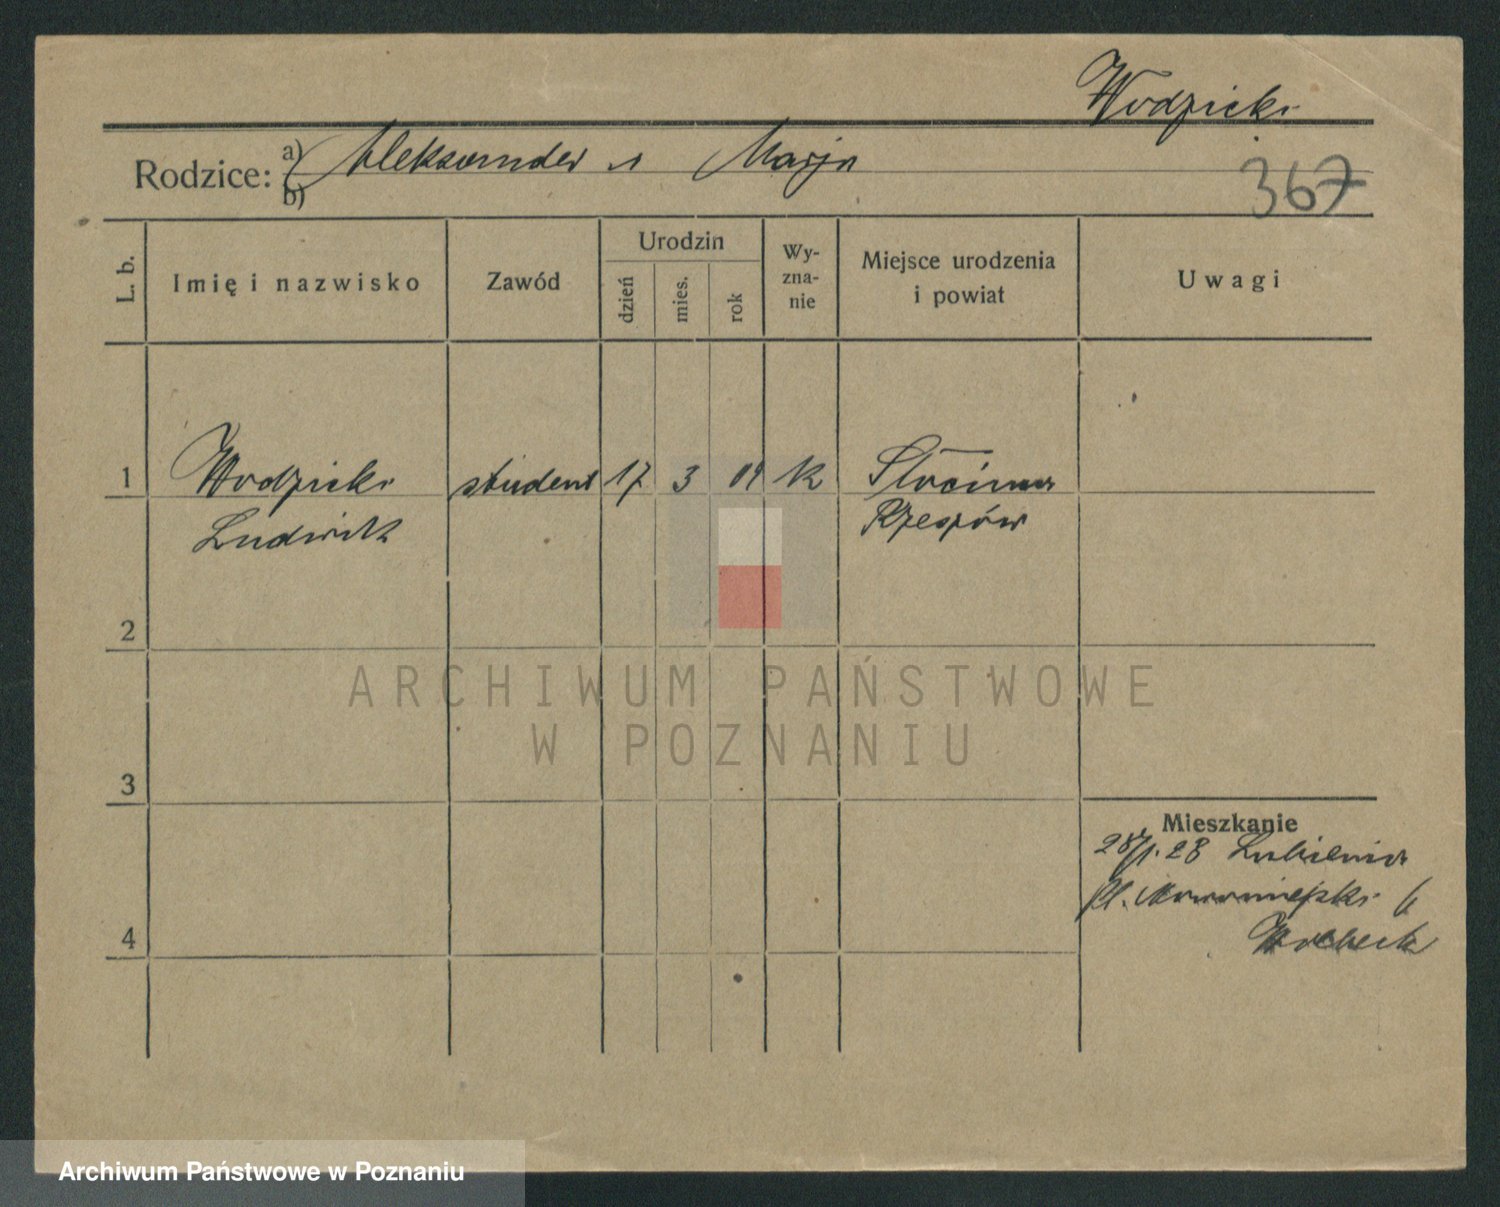 Wodzicki
Rodzice: a) Aleksander i Marja
b)
367
L. b.
Imię i nazwisko
Zawód
Urodzin
dzień
mies.
rok
Wy-
zna-
nie
Miejsce urodzenia
i powiat
Uwagi
1
Wodzicki student 17 3 04 k Słocina
Ludwik Rzeszów
2
ARCHIWUM PAŃSTWOWE
W POZNANIU
3
Mieszkanie
28/1.28
pl. Nowomiejski
4
Archiwum Państwowe w Poznaniu